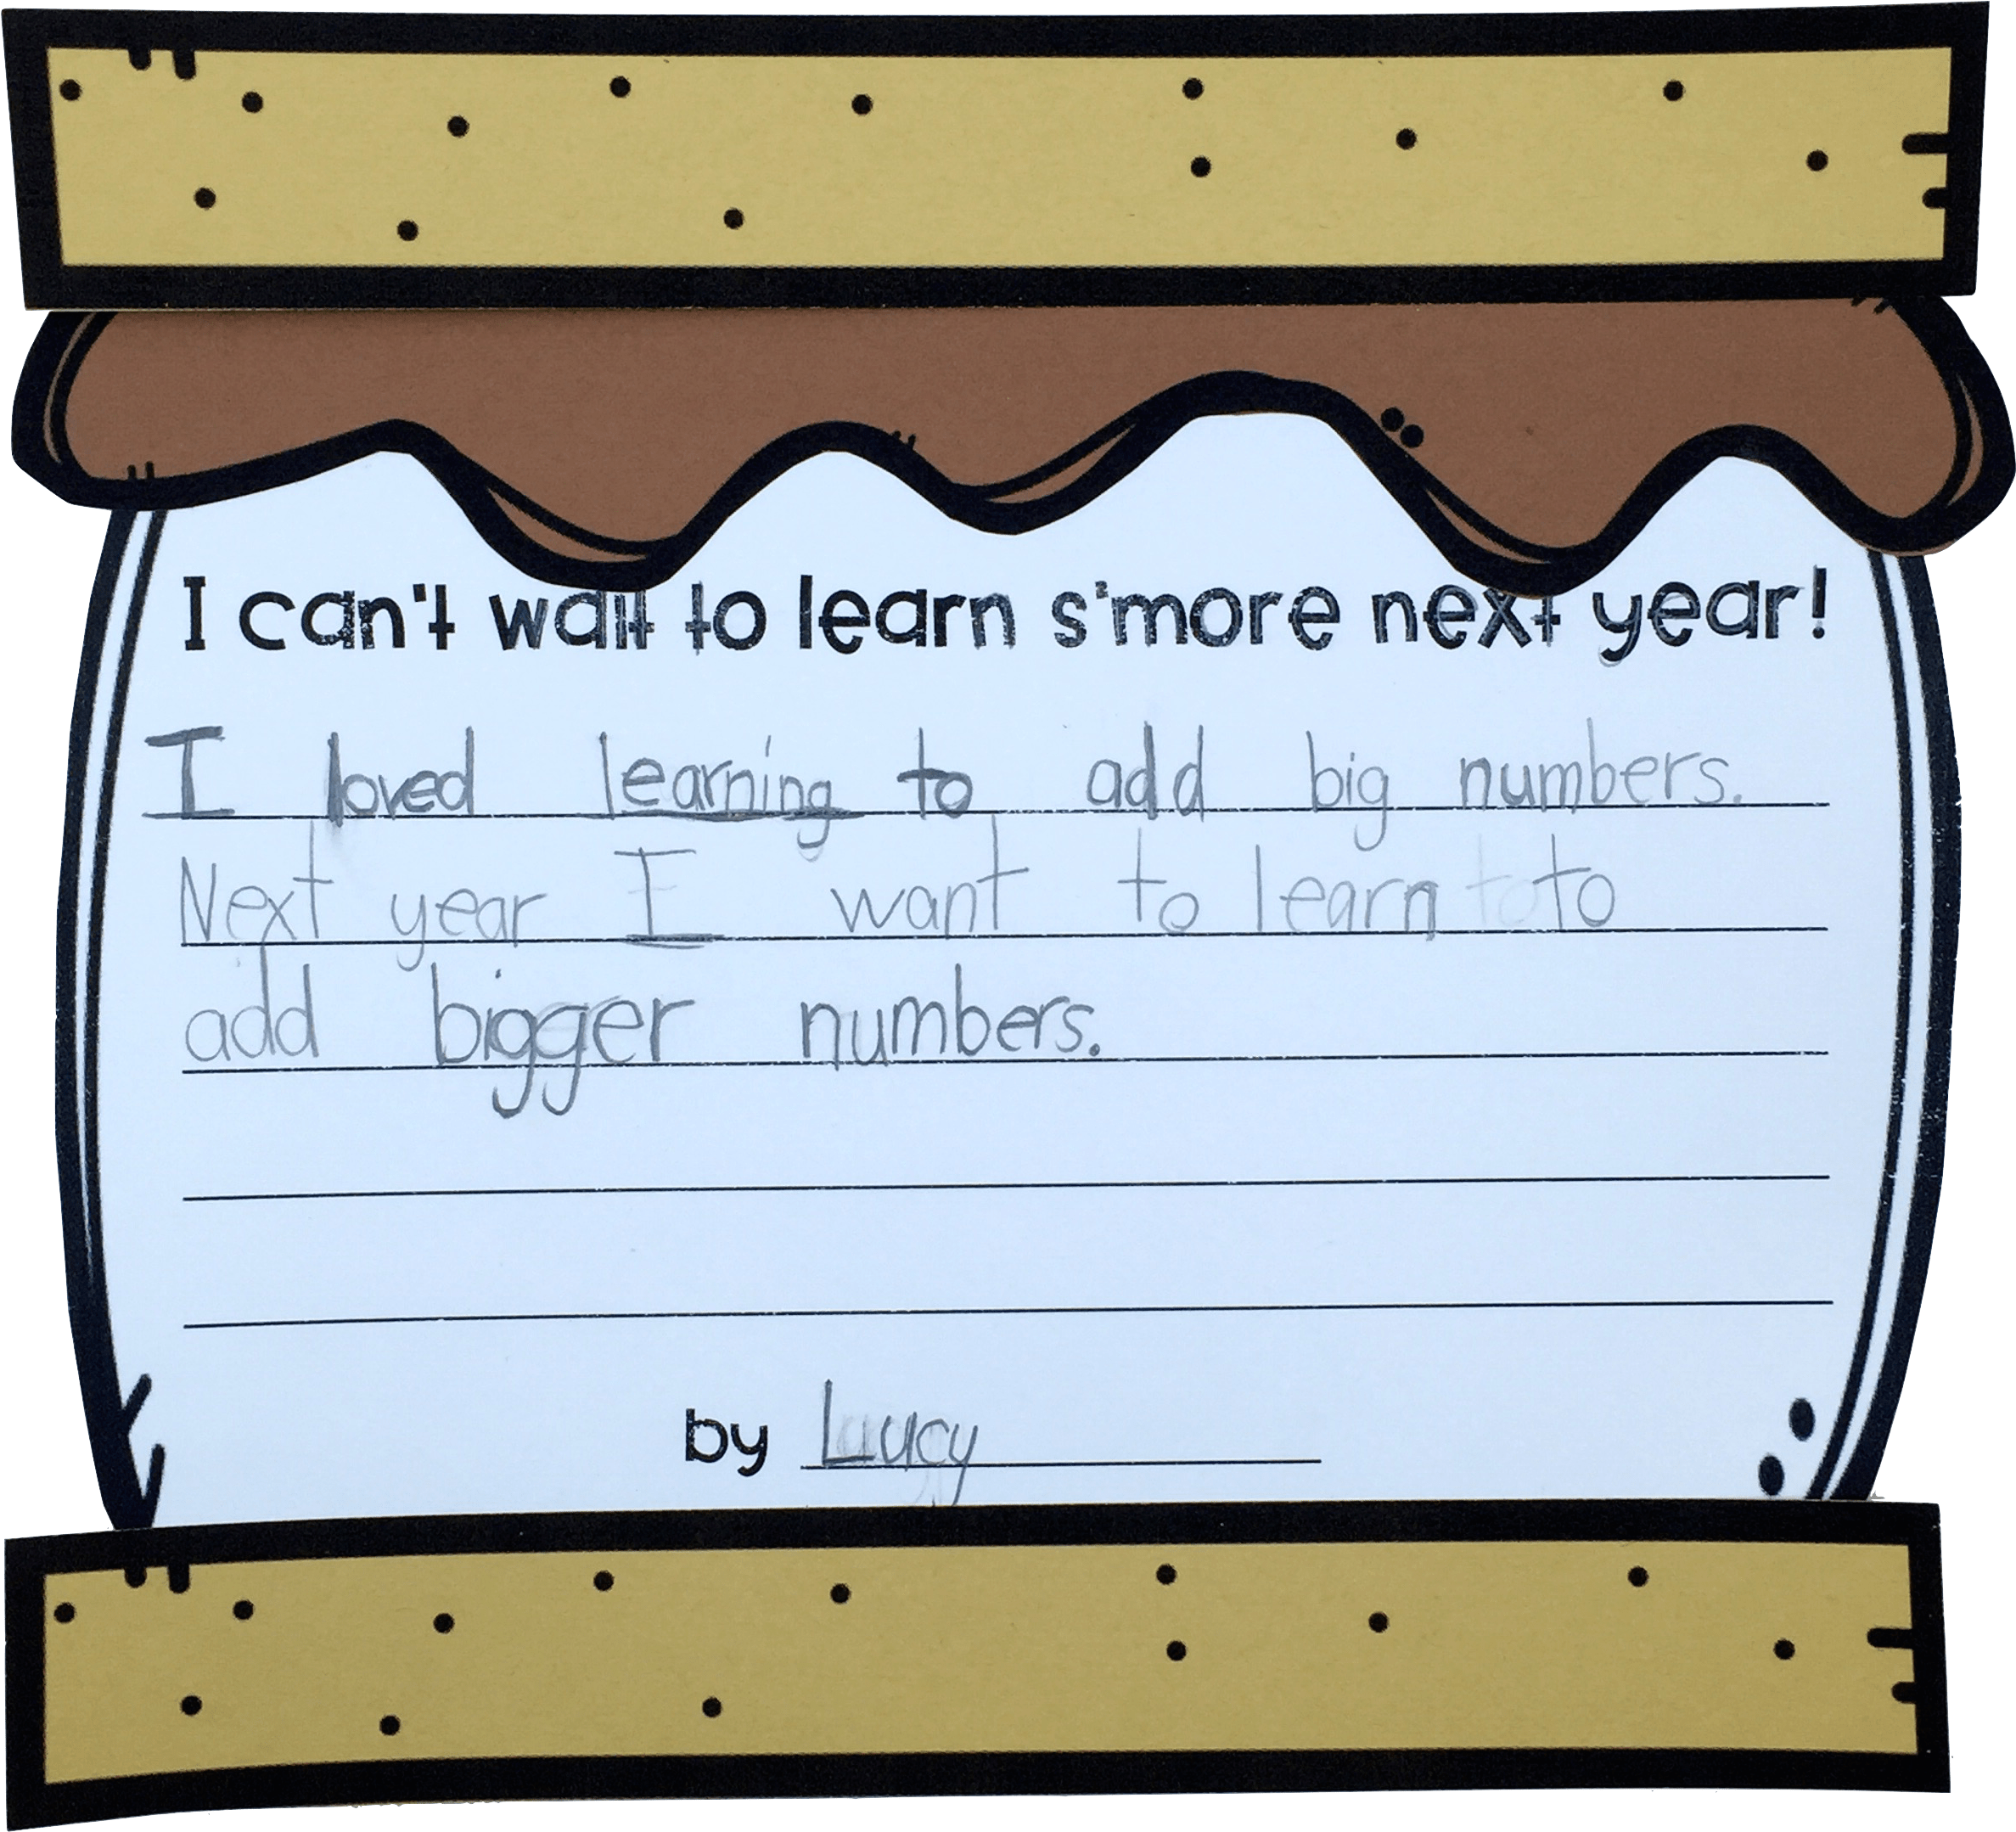 I can't wait to learn s'more next year!
I loved learning to add big numbers.
Next year I want to learn to
add bigger numbers.
by Lucy